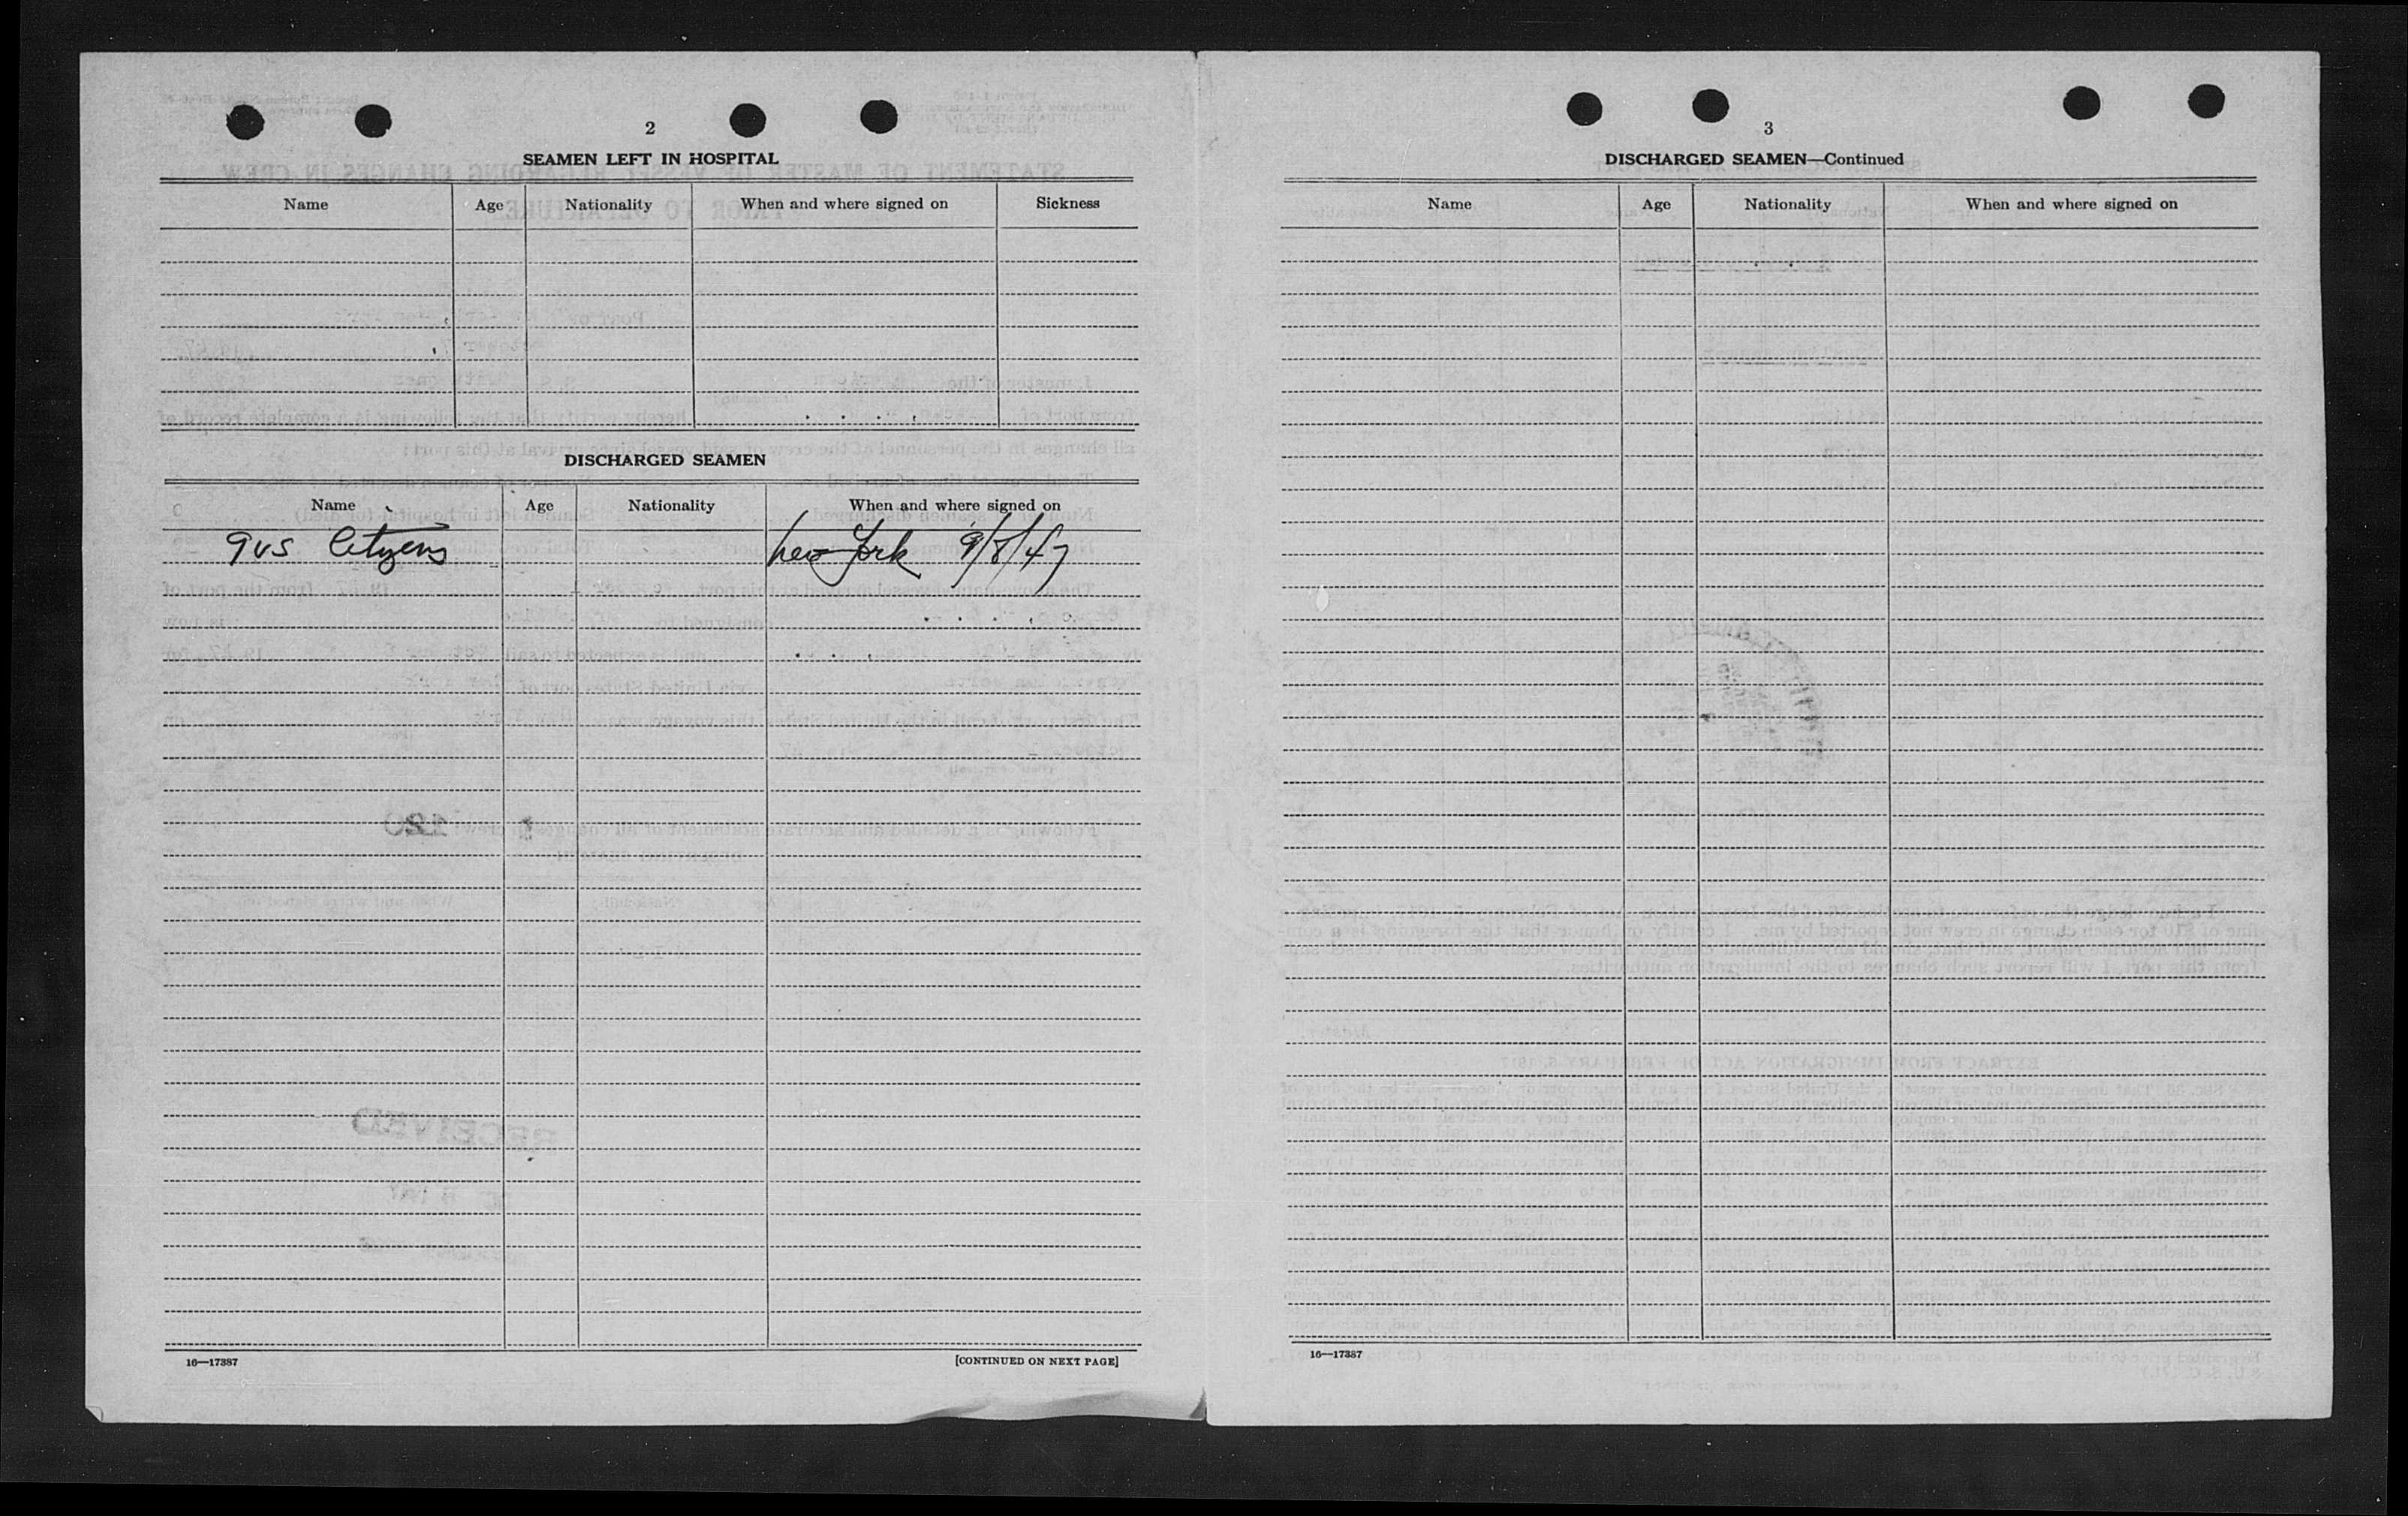 2
SEAMEN LEFT IN HOSPITAL
Name Age Nationality When and where signed on Sickness
DISCHARGED SEAMEN
Name Age Nationality When and where signed on
9 US Citizens New York 9/8/47
16—17387 [CONTINUED ON NEXT PAGE]
3
DISCHARGED SEAMEN—Continued
Name Age Nationality When and where signed on
16—17387